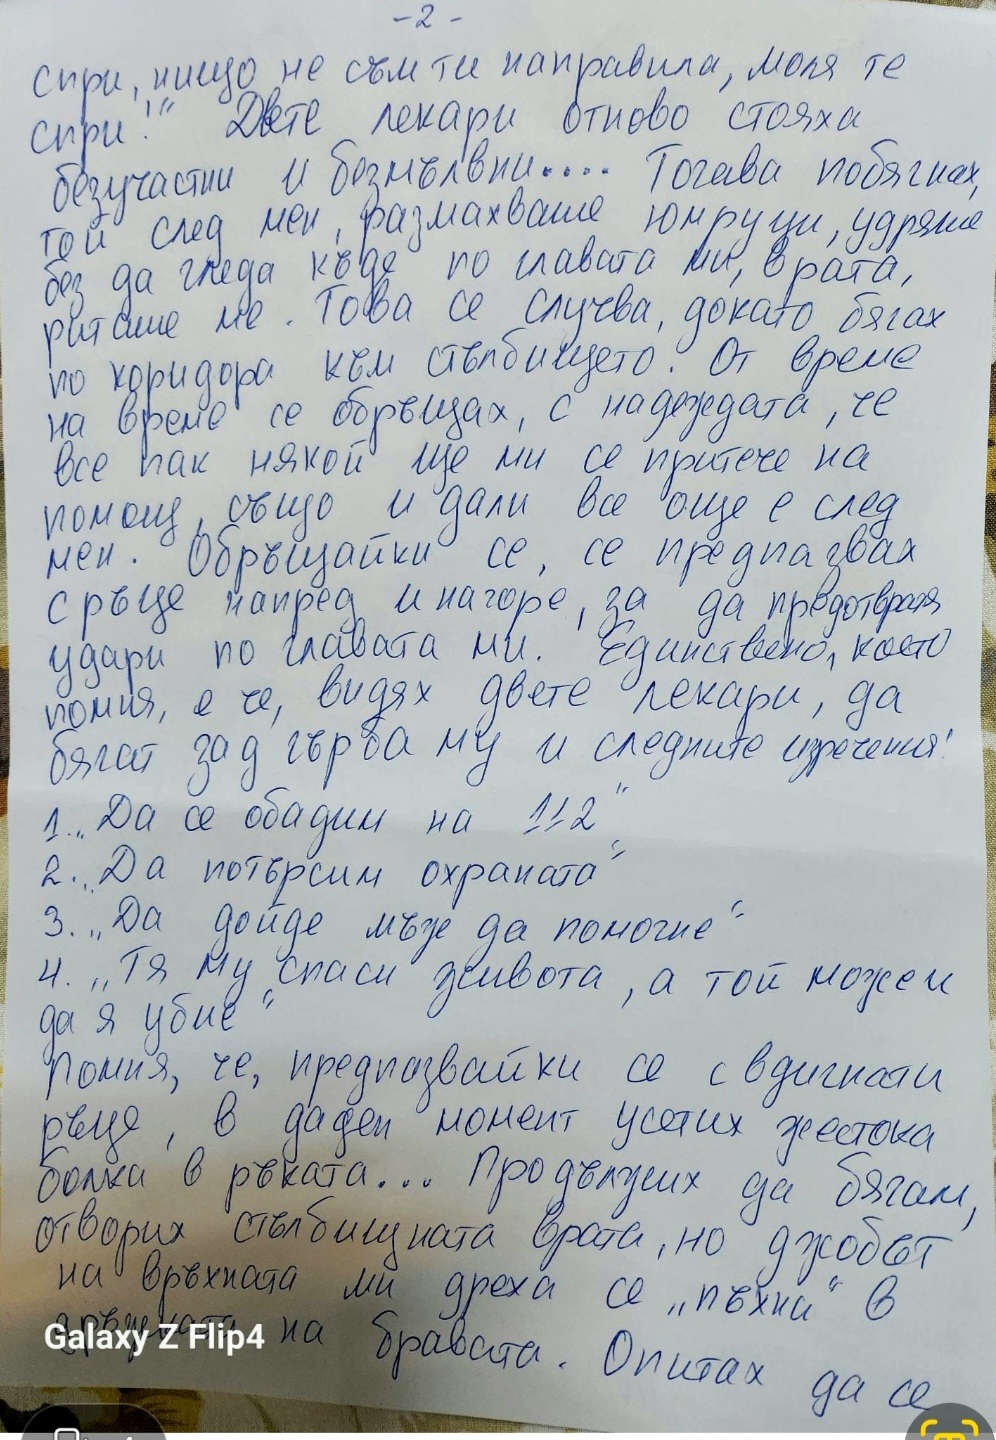 - 2 -
спри, нищо не съм ти направила, моля те
спри!" Двете лекари отново стояха
безучастни и безмълвни.... Тогава побягнах,
той след мен, размахваше юмруци, удряше
без да гледа къде по главата ми, врата,
риташе ме. Това се случва, докато бягах
по коридора към стълбището. От време
на време се обръщах, с надеждата, че
все пак някой ще ми се притече на
помощ, също и дали все още е след
мен. Обръщайки се, се предпазвах
с ръце напред и нагоре, за да предотвратя
удари по главата ми. Единствено, което
помня, е че, видях двете лекари, да
бягат зад гърба му и следните изречения:
1. „Да се обадим на 112"
2. „Да потърсим охраната"
3. „Да дойде мъж да помогне"
4. „Тя му спаси живота, а той може и
да я убие"
Помня, че, предпазвайки се с вдигнати
ръце, в даден момент усетих жестока
болка в ръката... Продължих да бягам,
отворих стълбищната врата, но джобът
на връхната ми дреха се „пъхна" в
дръжката на бравата. Опитах да се
Galaxy Z Flip4